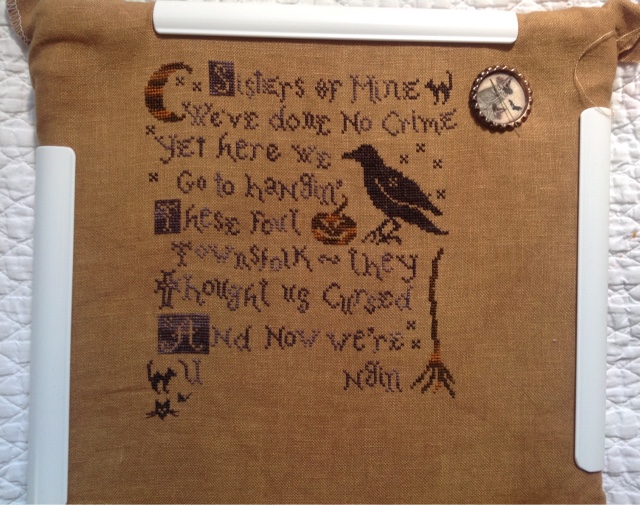 Sisters of Mine
We've done No Crime
Yet here we
Go to hangin'
These Foul
Townsfolk ~ they
Thought us Cursed
And Now we're
U ngin